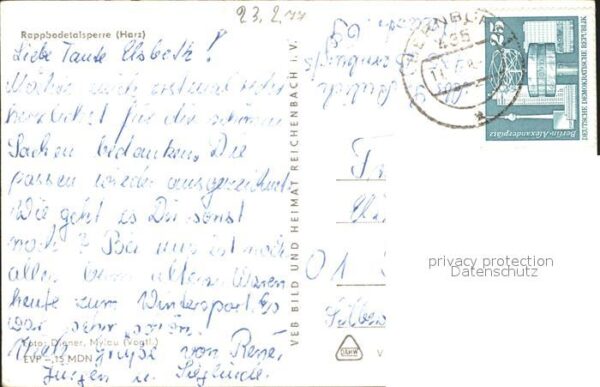 23.2.77
Rappbodetalsperre (Harz)
Liebe Tante Elsbeth!
Möchte mich erstmal recht
herzlichst für die schönen
Sachen bedanken. Die
passen wieder ausgezeichnet.
Wie geht es Dir sonst
noch? Bei uns ist noch
alles beim alten. Waren
heute zum Wintersport. Es
war sehr schön.
Foto: Diener, Mylau (Vogtl.)
EVP –,15 MDN
Viele Grüße von René,
Jürgen u. Sieglinde.
VEB BILD UND HEIMAT REICHENBACH i. V.
435
25
Berlin-Alexanderplatz
DEUTSCHE DEMOKRATISCHE REPUBLIK
Fr
01
privacy protection
Datenschutz
V